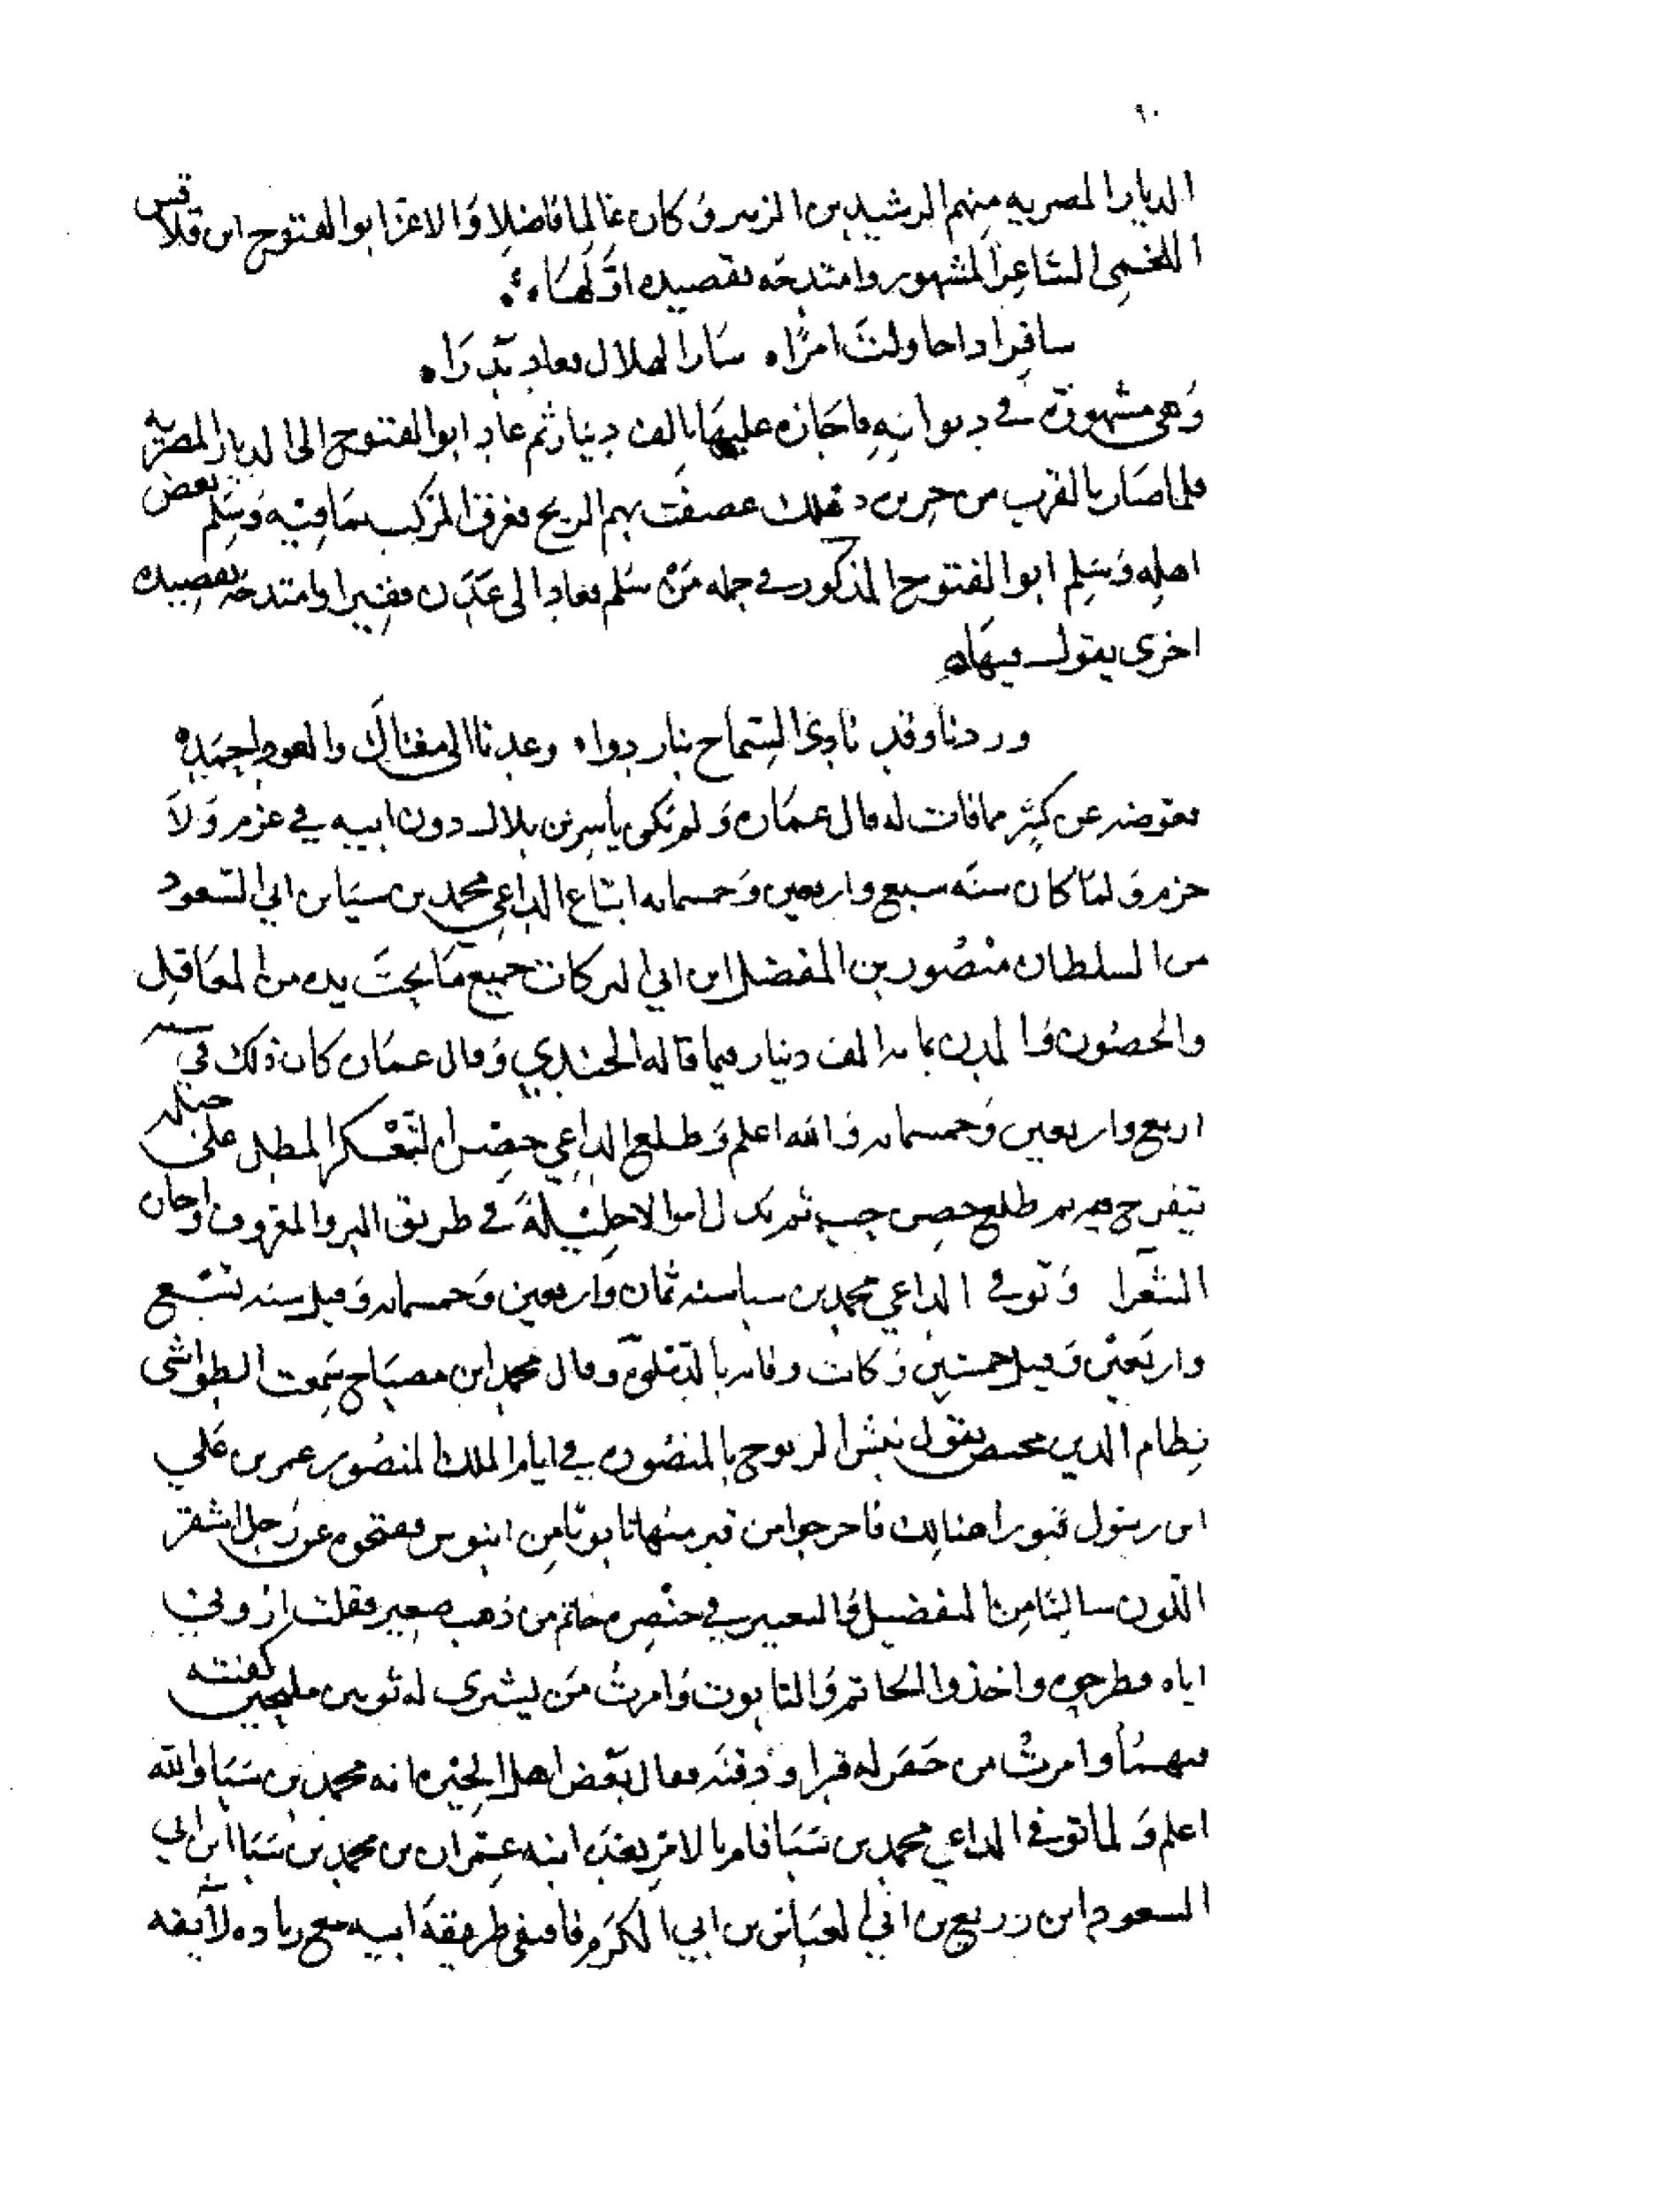 ٩٠
الديار المصريه منهم الرشيد بن الزبير وَكان عَالما فاضِلا وَالاعز ابو الفتوح ابن قلاقس
اللخمى الشاعِر المشهور وامتدحَه بقصيده اوَّلهَا
سافِر اذا حاولتَ امرًا سَار الهلال فعاد بَدرَا
وَهى مشهورة في ديوانِهِ فاجَازه عليهَا بالف دينار ثم عاد ابو الفتوح الى الديار المصريه
فلما صَار بالقرب من جزيرة دهلك عصفَت بهم الريح فغرق المرْكب بمَا فيْه وَسَلِم بعض
اهلِه وَسَلِم ابو الفتوح المذكور في جمله مَنْ سَلم فعاد الى عَدَن فقيرا وامتدحَه بقصيده
اخرى يقول فيهَا
وردنا وقد نادى السِّماح بنا ردوا وعدنا الى مغناكَ والعود احمَد
فعوضه عن كثير مما فات له قال عمَاره وَلم يكن ياسِر بن بلال دون ابيه في عزم وَلاَ
حزم وَلمّا كان سنَه سبع واربعين وَخمسمايه ابتاع الداعِي محمد بن سبَا بن ابي السّعود
من السلطان منْصُور بن المفضل ابن ابي البركات جميع مَا تحتَ يده من المعَاقِل
والحصُون وَالمدن بمايه الف دينار فيما قاله الجندي وَقال عمَاره كان ذلك في سنه
اربع واربعين وَخمسمايه وَالله اعلم وَطلع الداعِي حِصْن التَّعْكر المطل على جبله
توفي الداعي محمد بن سبا سنه ثمان وَاربعين وَخمسمايه وَقيل سنه تسْع
واربَعيْن وَقيل خمسين وَكانت وفاته بالدّملوَه وقال محمد ابن مصبَاح سَمِعت الطواشى
نِظام الدين مختص يقول نبشَ المربوح بالمنصُوره في ايام الملك المنصُور عمر بن عَلي
ابن رسَول قبورا هنالك فاخرجوا من قبر منْها تابوتا مِن ابنوس ففتحوه عن رَجل اشقر
اللّون سالِمًا مِن التفضيل وَالتغيير في خنْصِره خاتم من ذهب صغير فقلت ارُوني
اياه فطرحوه واخذوا الخاتم وَالتابوت وَامرتُ مَن يشترى له ثوبين مليحين كفنته
فيهمَا وامرتُ من حَفَر له قبرا وَدفنَه فقال بَعْض اهل الخِبْره انه محمد بن سَبَا والله
اعلم وَلما توفي الداعي محمد بن سَبَا قام بالامْر بعْدَه ابنه عِمْران بن محمد بن سَبَا ابن ابي
السعود ابن زريع بن ابي العبَاس بن ابي الكرَم فاقتفى طريقة ابيه مع زياده لآيقه